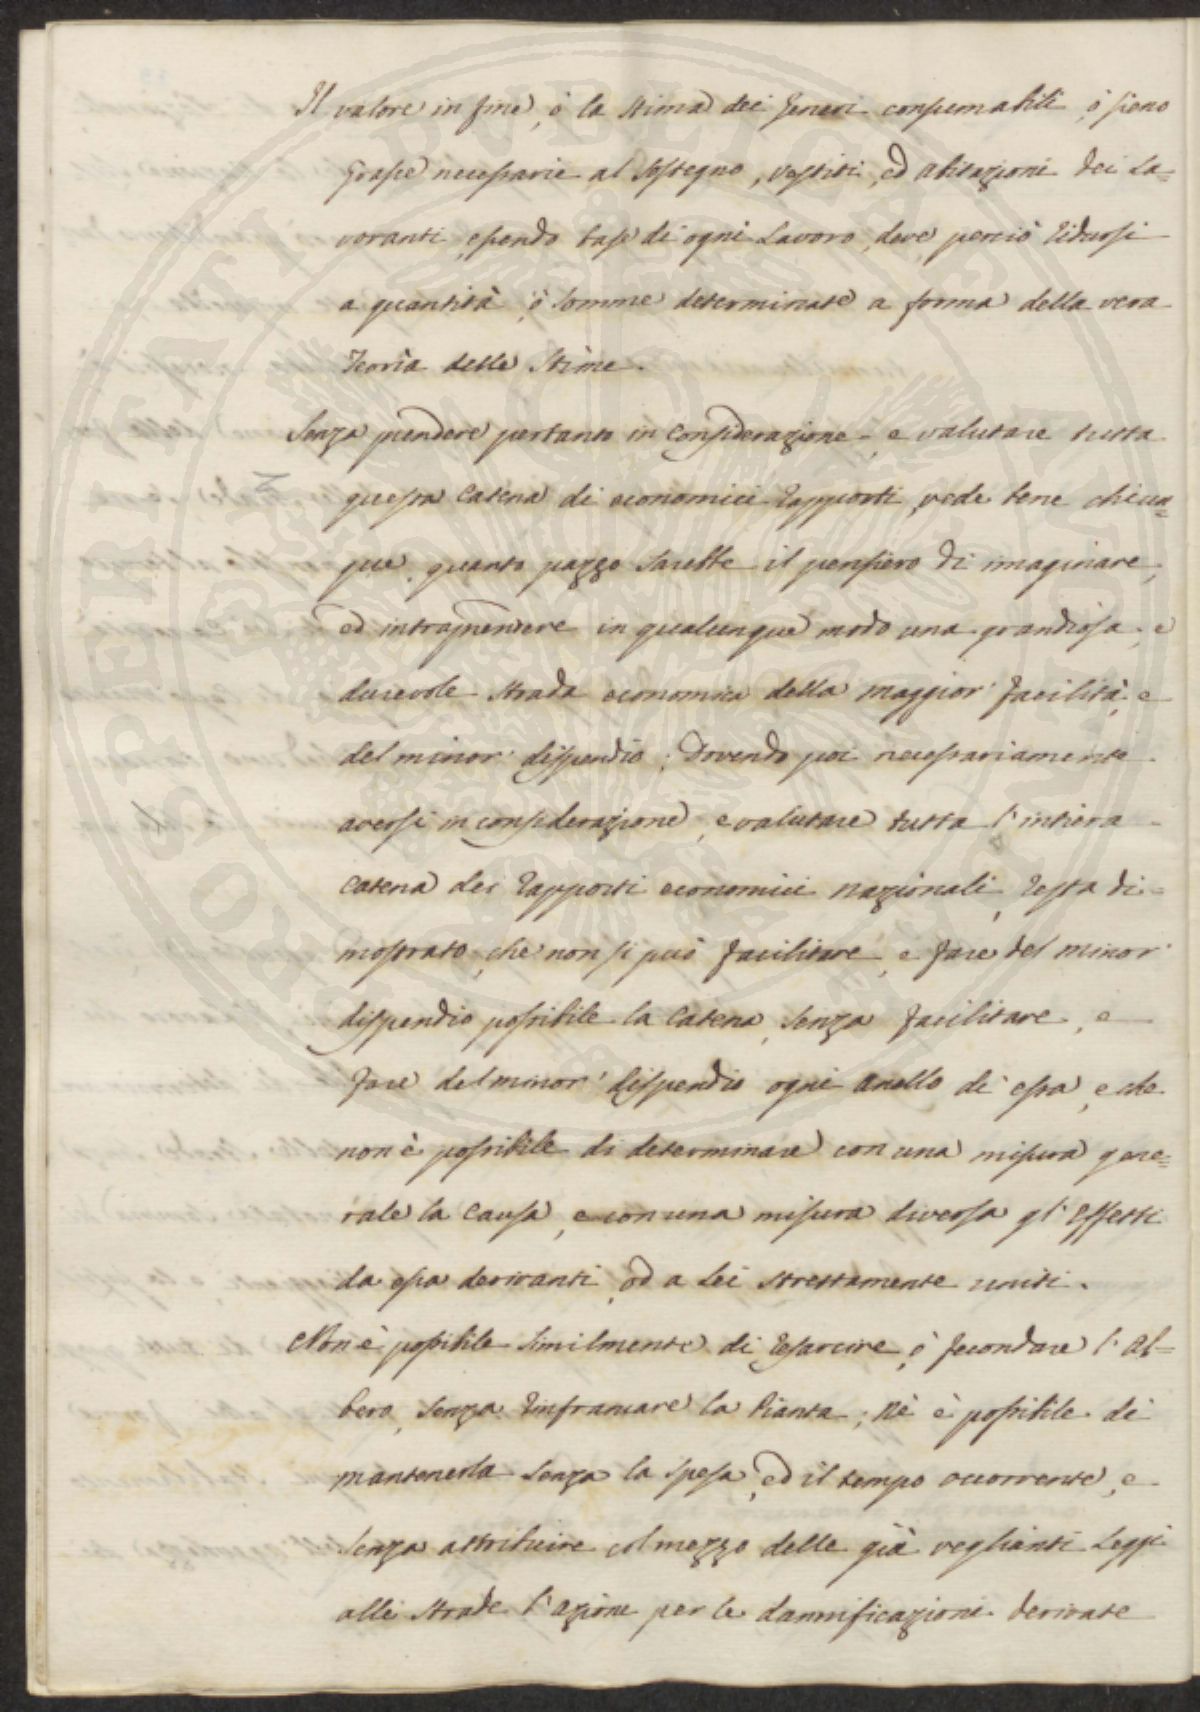 Il valore in fine, ò la stima dei generi consumabili, ò sieno
Grasce necessarie al sostegno, vestiti, ed abitazioni dei La=
voranti, essendo base di ogni Lavoro, deve perciò ridursi
a quantità, ò somme determinate a forma della vera
Teoria delle Stime.
Senza prendere pertanto in considerazione, e valutare tutta
questa catena di economici rapporti, vede bene chiun=
que, quanto pazzo sarebbe il pensiero di imaginare,
ed intraprendere in qualunque modo una grandiosa, e
durevole strada economica della maggior facilità, e
del minor dispendio; Dovendo poi necessariamente
aversi in considerazione, e valutare tutta l'intiera
catena dei rapporti economici nazionali, resta di=
mostrato, che non si può facilitare, e fare del minor
dispendio possibile la Catena, senza facilitare, e
fare del minor dispendio ogni anello di essa, e che
non è possibile di determinare con una misura gene=
rale la causa, e con una misura diversa gl'Effetti
da essa derivanti, ed a Lei strettamente uniti.
Non è possibile similmente di resarcire, ò fecondare l'Al=
bero, senza rinfrancare la Pianta; Nè è possibile di
mantenerla senza la spesa, ed il tempo occorrente, e
senza attribuire col mezzo delle già veglianti Leggi
alle Strade l'azione per le dannificazioni derivate
PROSPERITATI PVBLICAE AVGENDAE